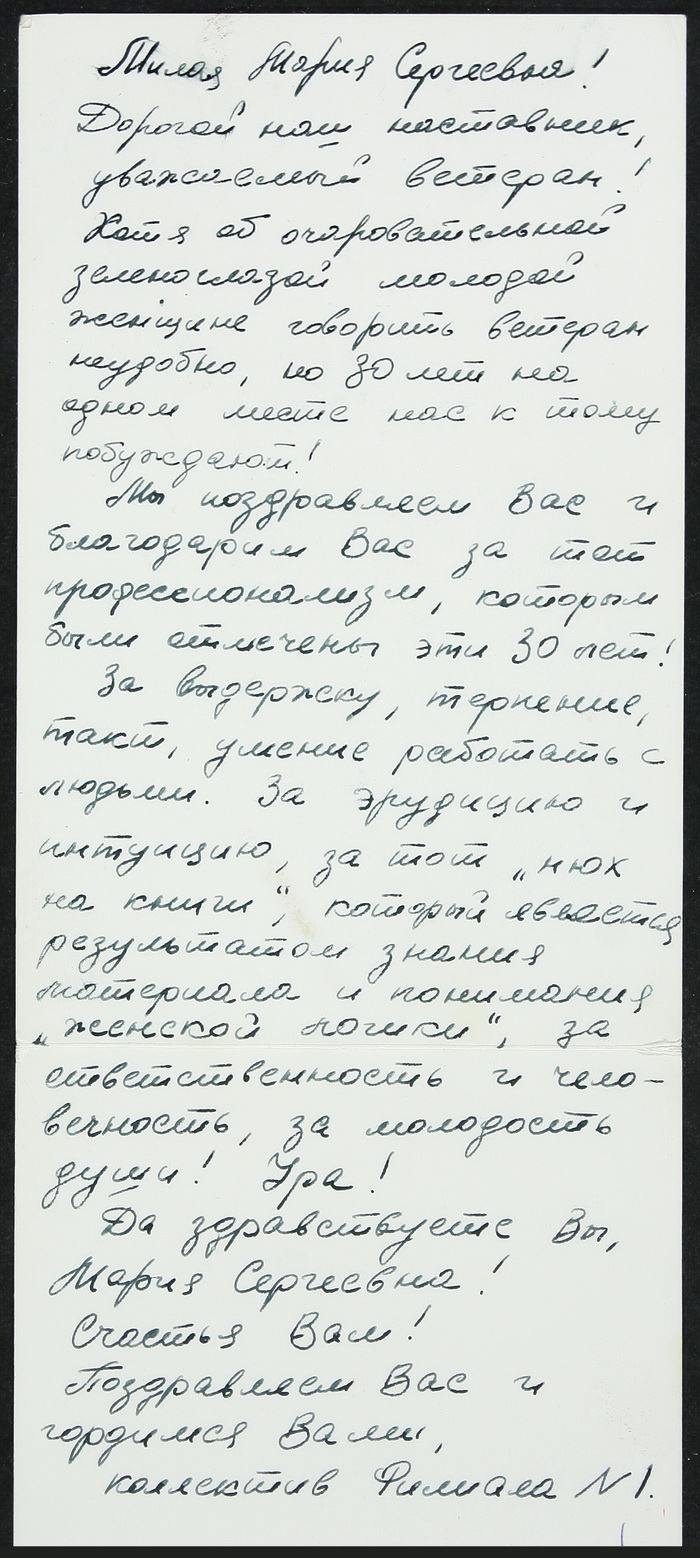 Милая Мария Сергеевна!
Дорогой наш наставник,
уважаемый ветеран!
Хотя об очаровательной
зеленоглазой молодой
женщине говорить ветеран
неудобно, но 30 лет на
одном месте нас к тому
побуждают!
Мы поздравляем Вас и
благодарим Вас за тот
профессионализм, которым
были отмечены эти 30 лет!
За выдержку, терпение,
такт, умение работать с
людьми. За эрудицию и
интуицию, за тот „нюх
на книги“, который является
результатом знания
материала и понимания
„женской логики“, за
ответственность и чело-
вечность, за молодость
души! Ура!
Да здравствуете Вы,
Мария Сергеевна!
Счастья Вам!
Поздравляем Вас и
гордимся Вами,
коллектив Филиала N 1.